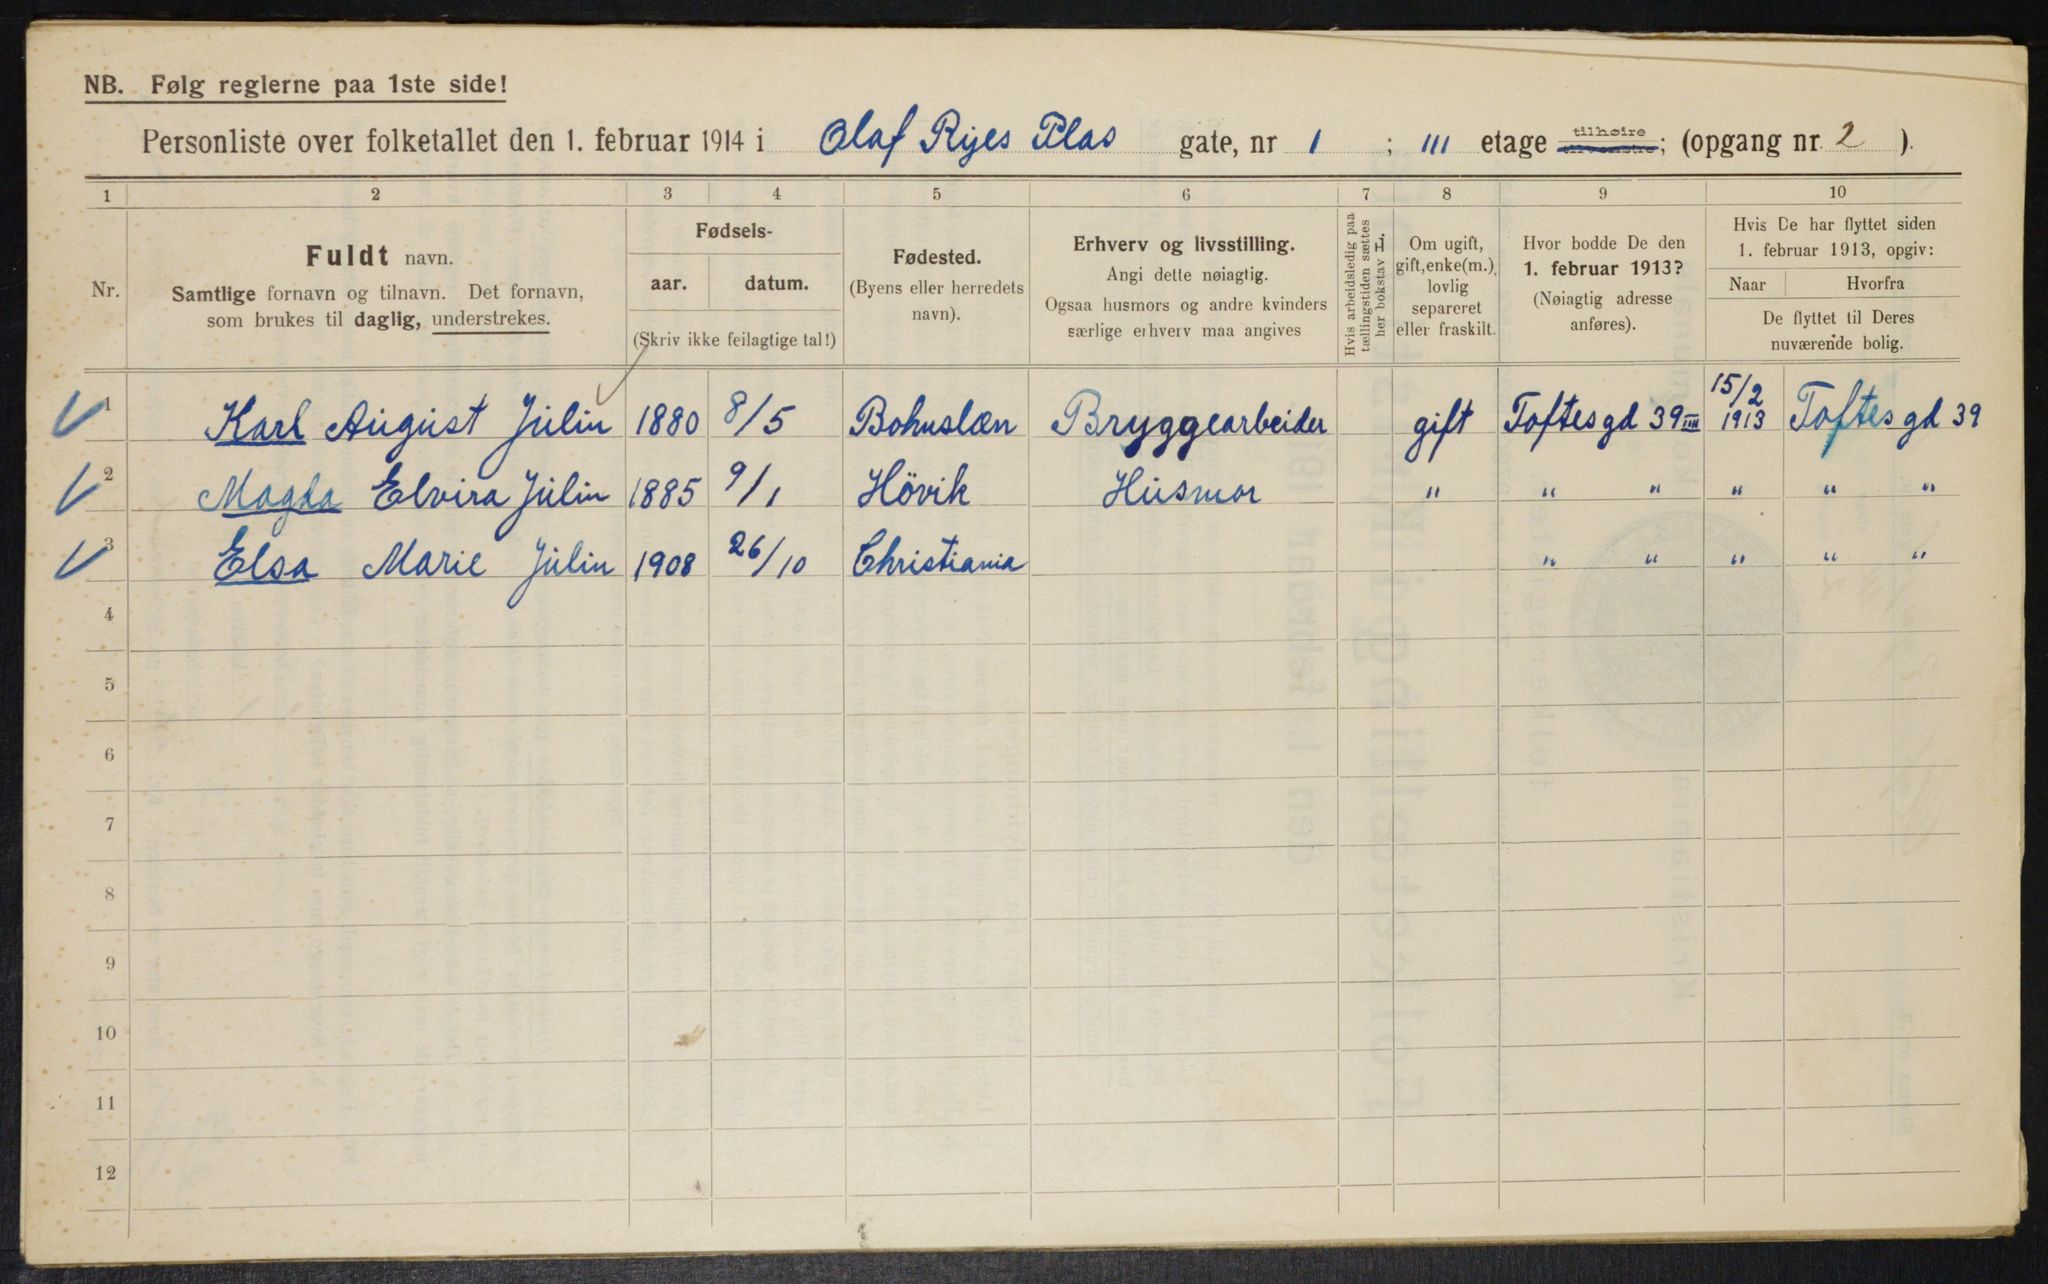 NB. Følg reglerne paa 1ste side!
Personliste over folketallet den 1. februar 1914 i Olaf Ryes Plas gate, nr 1 ; III etage tilhøire tilvenstre; (opgang nr. 2 ).
1 2 3 4 5 6 7 8 9 10
Nr.
Fuldt navn.
Samtlige fornavn og tilnavn. Det fornavn,
som brukes til daglig, understrekes.
Fødsels-
aar. datum.
(Skriv ikke feilagtige tal!)
Fødested.
(Byens eller herredets
navn).
Erhverv og livsstilling.
Angi dette nøiagtig.
Ogsaa husmors og andre kvinders
særlige erhverv maa angives
Hvis arbeidsledig paa
tællingstiden sættes
her bokstav L.
Om ugift,
gift, enke(m.),
lovlig
separeret
eller fraskilt.
Hvor bodde De den
1. februar 1913?
(Nøiagtig adresse
anføres).
Hvis De har flyttet siden
1. februar 1913, opgiv:
Naar Hvorfra
De flyttet til Deres
nuværende bolig.
1 Karl August Julin 1880 8/5 Bohuslæn Bryggearbeider gift Toftesgd 39 III 15/2 1913 Toftesgd 39
2 Magda Elvira Julin 1885 9/1 Hövik Husmor " " " " " "
3 Elsa Marie Julin 1908 26/10 Christiania " " " " "
4
5
6
7
8
9
10
11
12